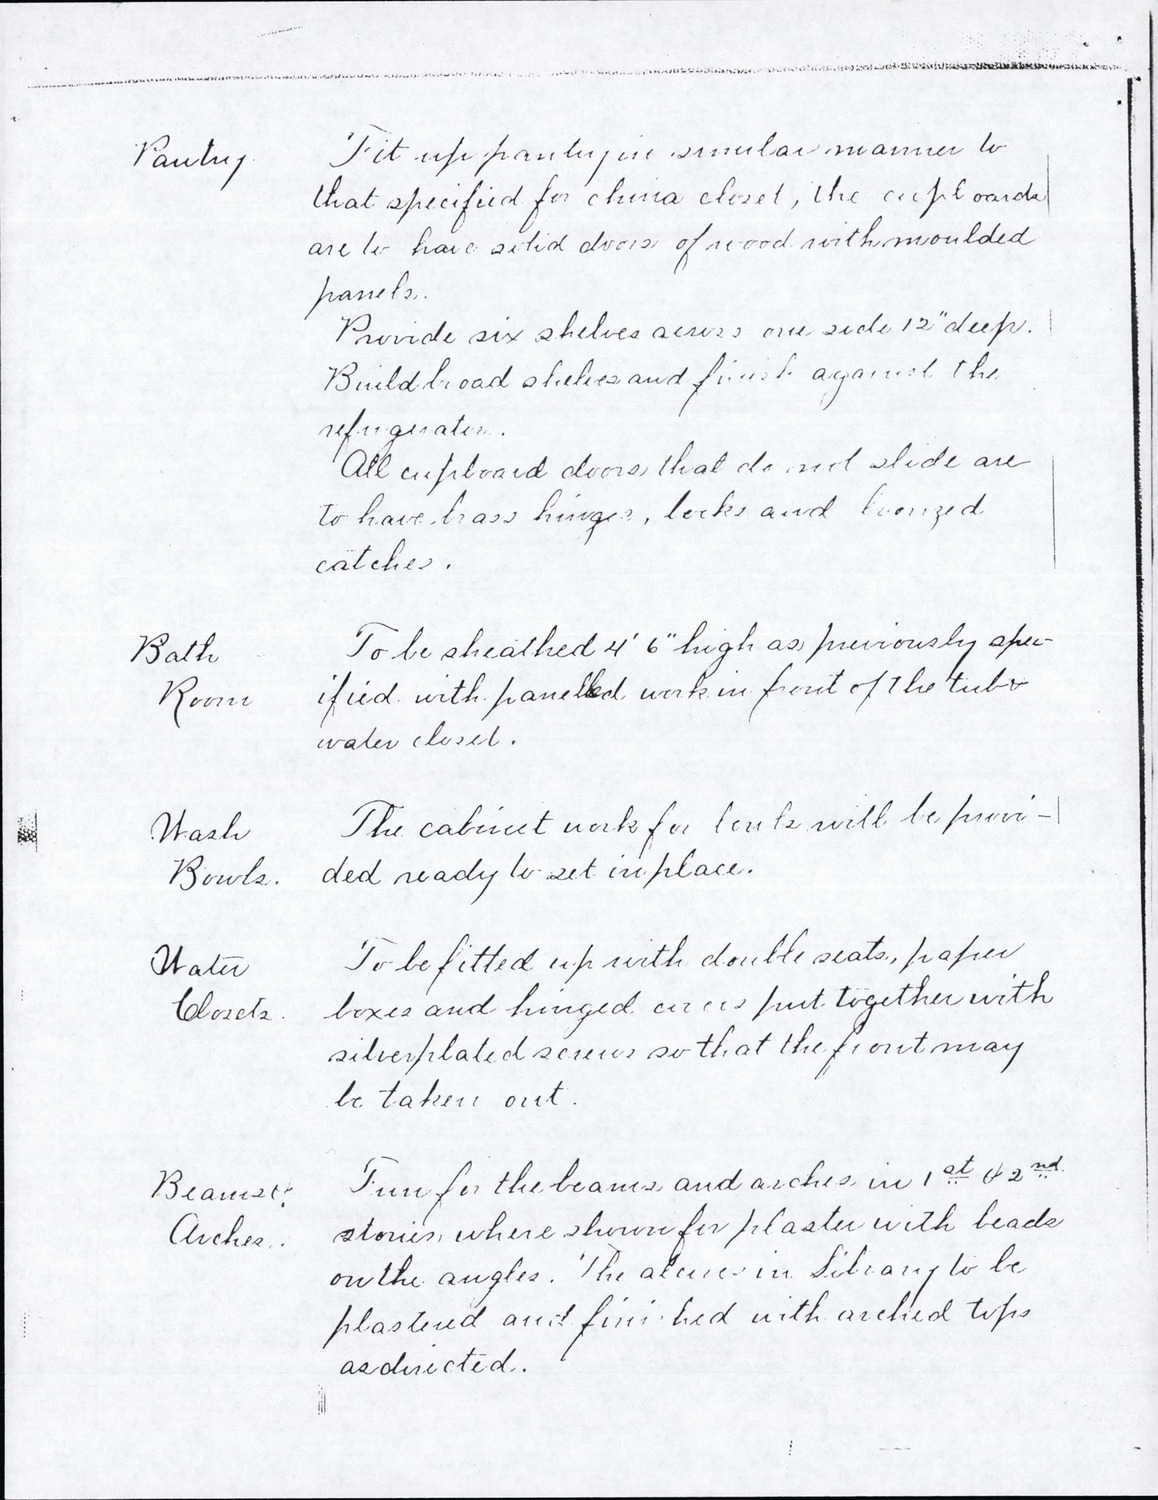 Pantry Fit up pantry in similar manner to
that specified for china closet, the cupboards
are to have solid doors of wood with moulded
panels.
Provide six shelves across one side 12" deep.
Build broad shelves and finish against the
refrigerator.
All cupboard doors that do not slide are
to have brass hinges, locks and bronzed
catches.
Bath To be sheathed 4' 6" high as previously spec-
Room ified with panelled work in front of the tub &
water closet.
Wash The cabinet work for bowls will be provi-
Bowls. ded ready to set in place.
Water To be fitted up with double seats, paper
Closets. boxes and hinged covers put together with
silverplated screws so that the front may
be taken out.
Beams & Furr for the beams and arches in 1st & 2nd
Arches. stories where shown for plaster with beads
on the angles. The alcoves in Library to be
plastered and finished with arched tops
as directed.